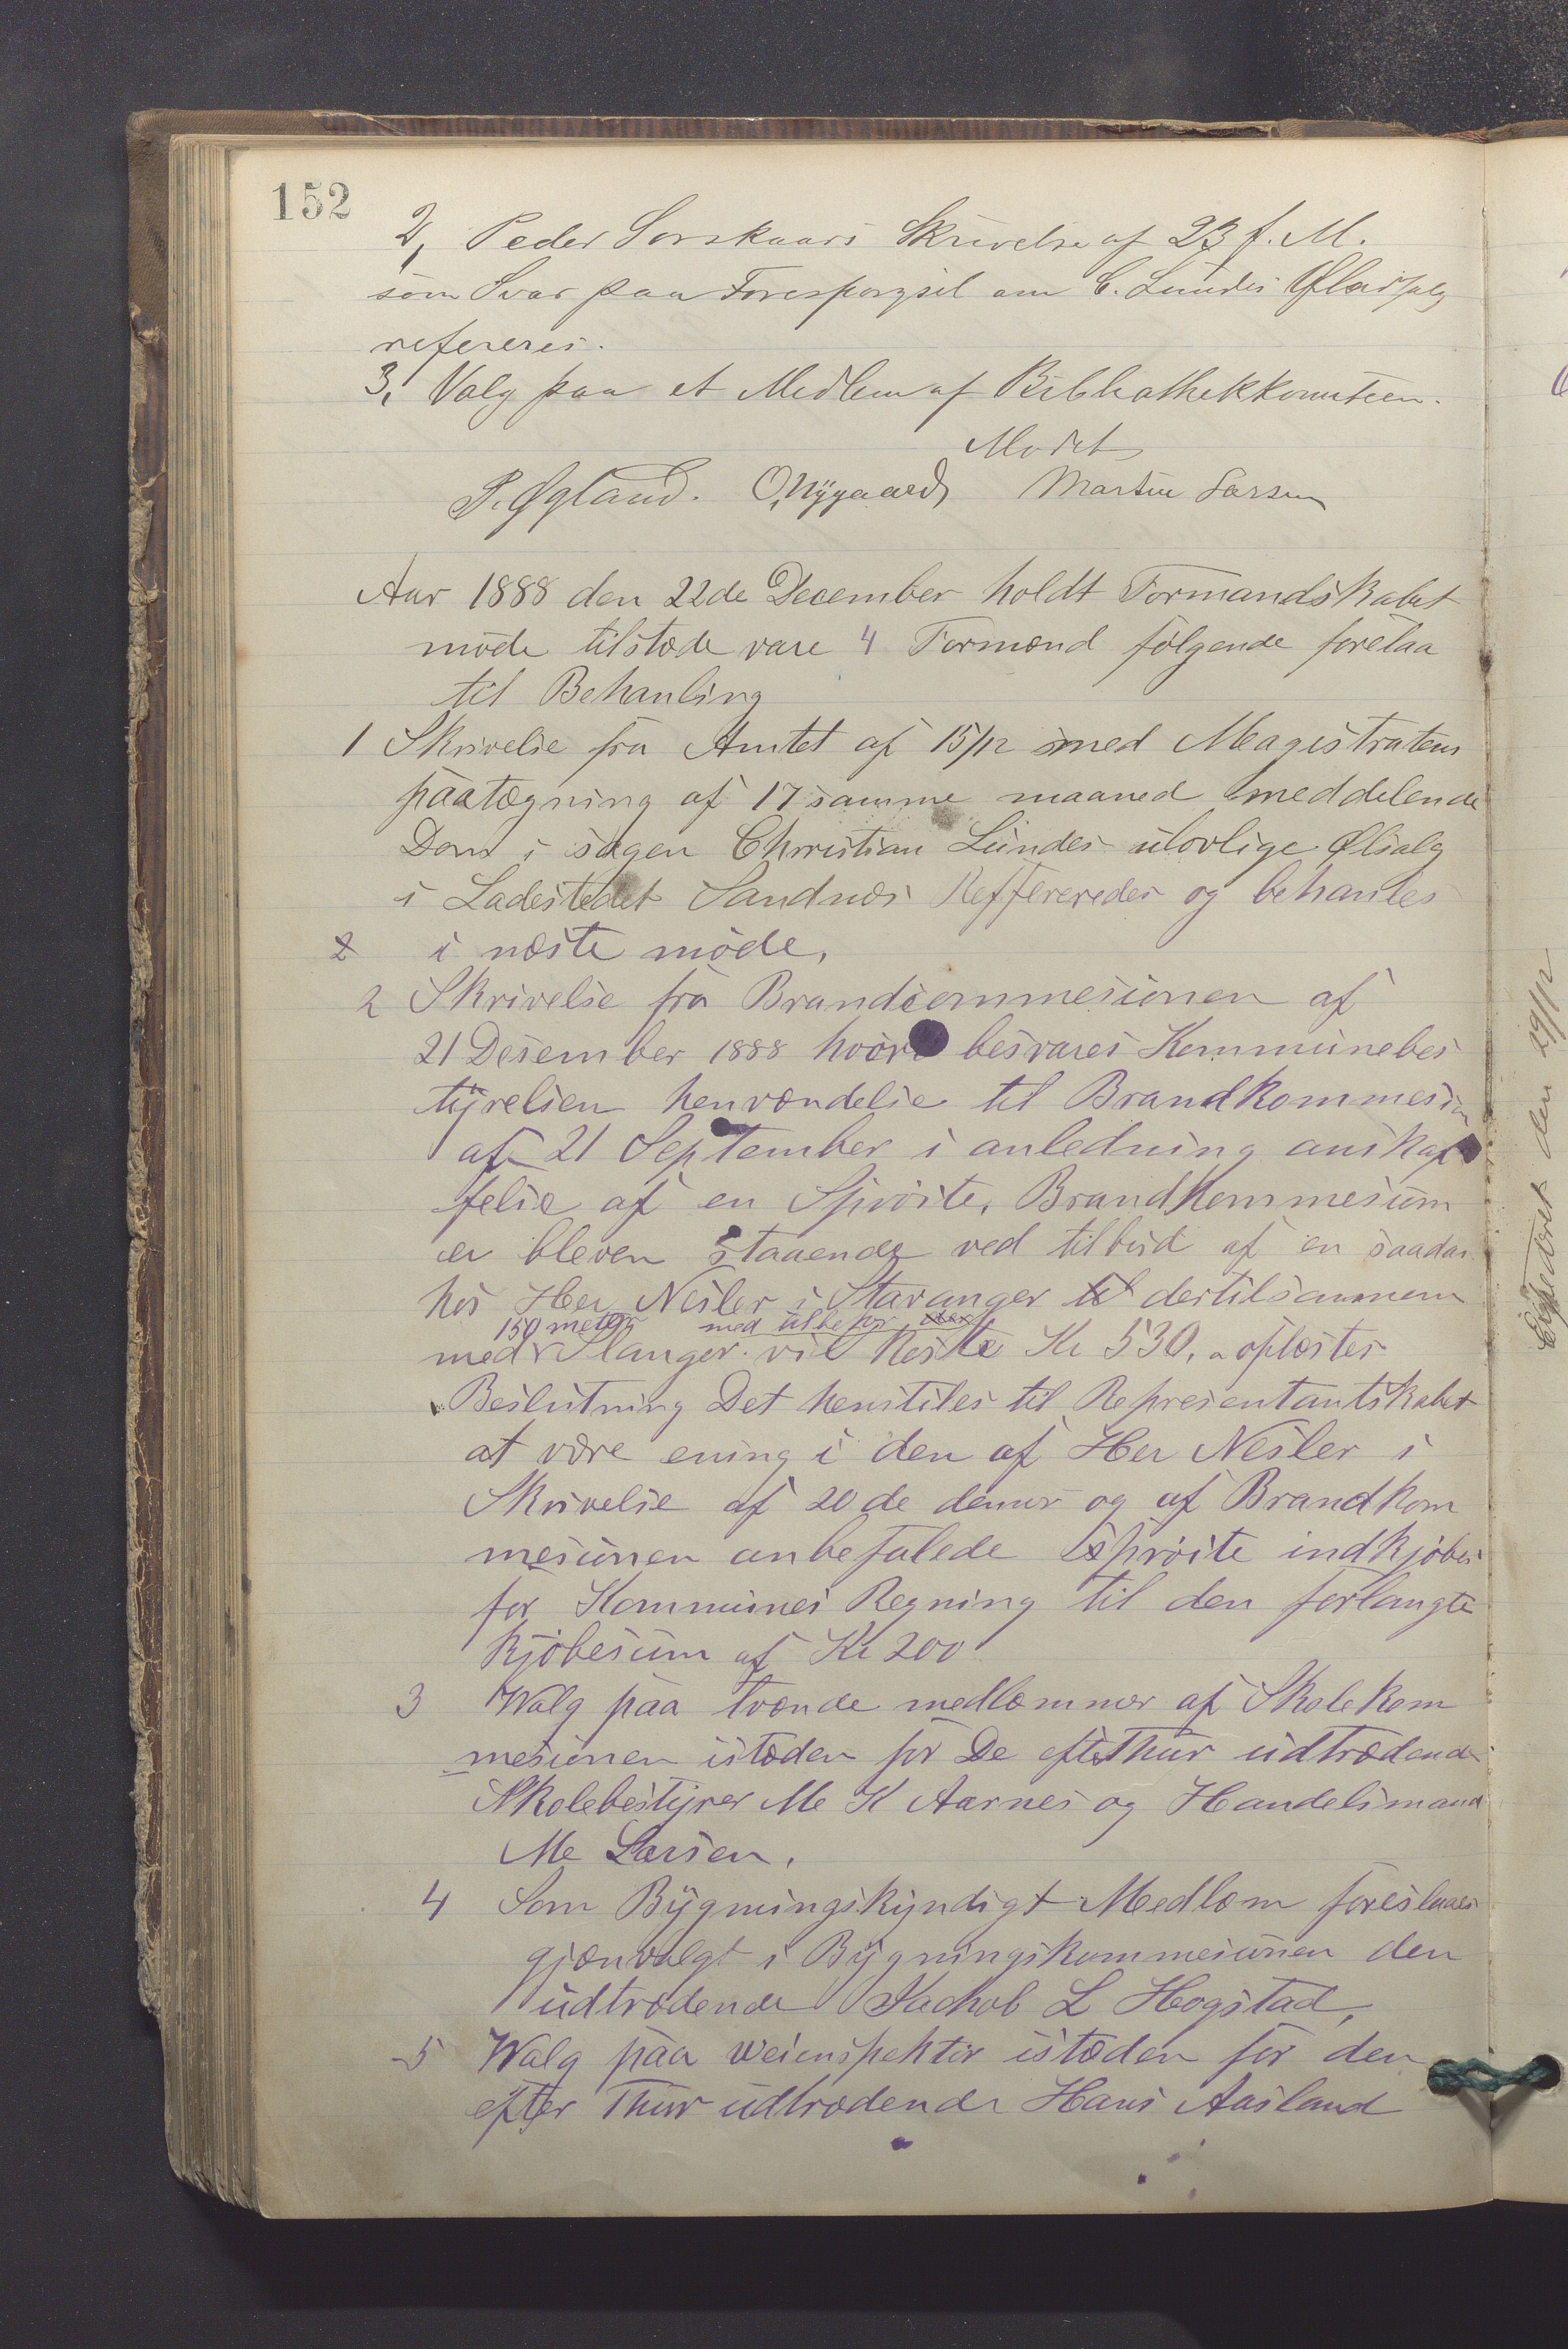 152
2, Peder Sorskaars Skrivelse af 23 f. M.
som Svar paa Forespørgsel om C. Lundes Ølsalg
refereres.
3, Valg paa et Medlem af Bibliothekkomiteen.
Mødet
P. Øgland. O, Nygaard, Martin Larsen
Aar 1888 den 22de December holdt Formandskabet
møde tilstæde vare 4 Formænd følgende forelaa
til Behanling
1 Skrivelse fra Amtet af 15/12 med Magistratens
paategning af 17 samme maaned meddelende
Dom i sagen Christian Lundes ulovlige Ølsalg
i Ladestedet Sandnæs Reffereredes og behanles
2 i næste møde,
2 Skrivelse fra Brandcommesionen af
21 Desember 1888 hvori besvares Kommunebes
tyrelsen henvændelse til Brandkommesion
af 21 September i anledning anskaf
felse af en Sprøite, Brandkommesium
er bleven staaende ved tilbud af en saadan
hos Her Nesler i Stavanger til dertilsammem
150 meter med
med Slanger vil koste Kr 530, oplæstes
Beslutning Det henstiles til Representantskabet
at være ening i den af Her Nesler i
Skrivelse af 20de denne og af Brandkom
mesionen anbefalede sprøite indkjøbes
for Kommunes Regning til den forlangte
kjøbesum af Kr 200
3 Walg paa tvænde medlæmmer af Skolekom
mesionen istæden for De efter Thur udtrædende
Skolebestyrer M K Aarnes og Handelsmand
M Larsen,
4 Som Bygningskyndigt Medlæm foreslaaes
gjænvalgt i Bygningskommesionen den
udtrædende Jachob L Hogstad,
5 Walg paa veienspektør istæden for den
efter Thur udtrædende Hans Aasland
den 29/12